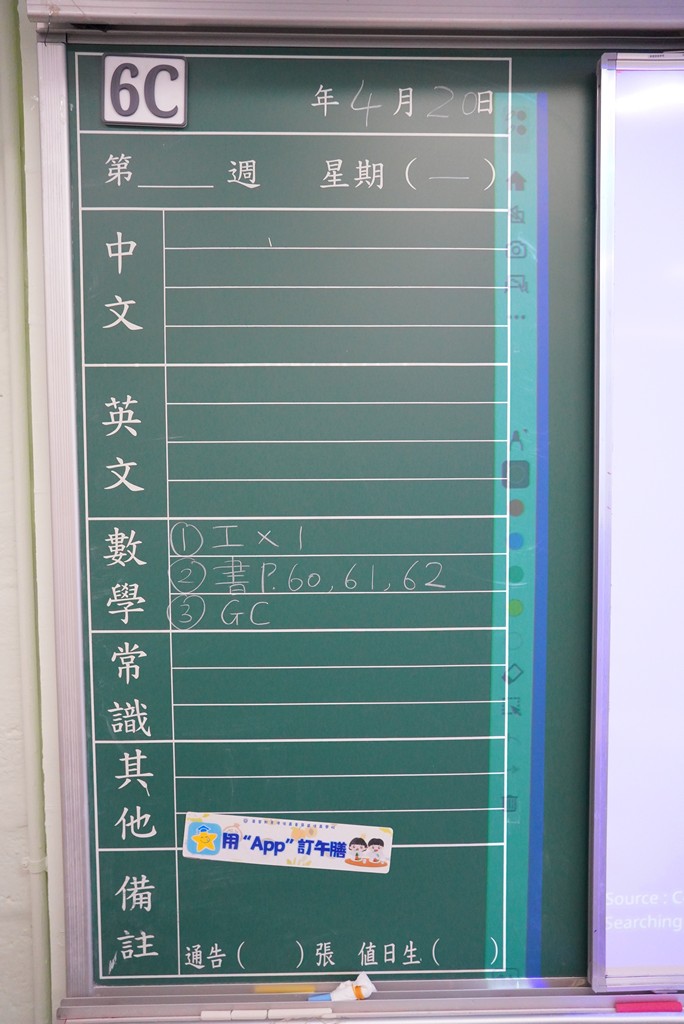 6C
年 4 月 20 日
第____週 星期(一)
中文
英文
數學
① 工 x 1
② 書 P.60, 61, 62
③ GC
常識
其他
用 “App” 訂午膳
備註
通告( )張 值日生( )
Source : C
Searching